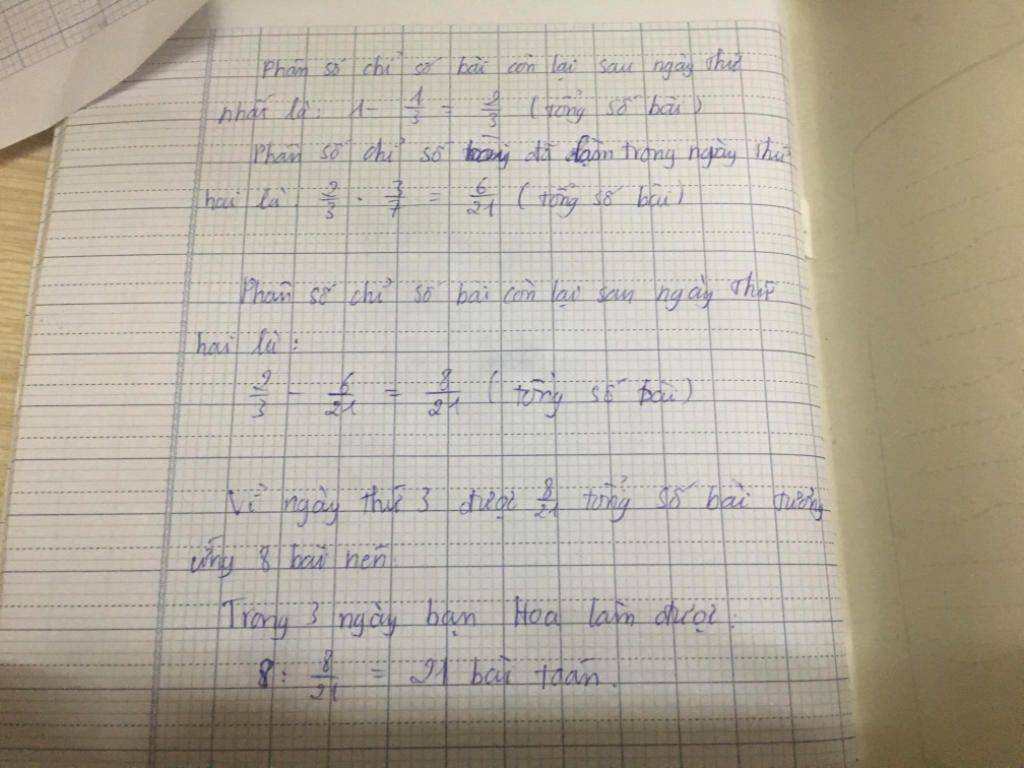 Phân số chỉ số bài còn lại sau ngày thứ
nhất là: 1 - 1/3 = 2/3 (tổng số bài)
Phân số chỉ số đã làm trong ngày thứ
hai là 2/3 . 3/7 = 6/21 (tổng số bài)
Phân số chỉ số bài còn lại sau ngày thứ
hai là:
2/3 - 6/21 = 8/21 (tổng số bài)
Vì ngày thứ 3 được 8/21 tổng số bài tương
ứng 8 bài nên
Trong 3 ngày bạn Hoa làm được:
8 : 8/21 = 21 bài toán.